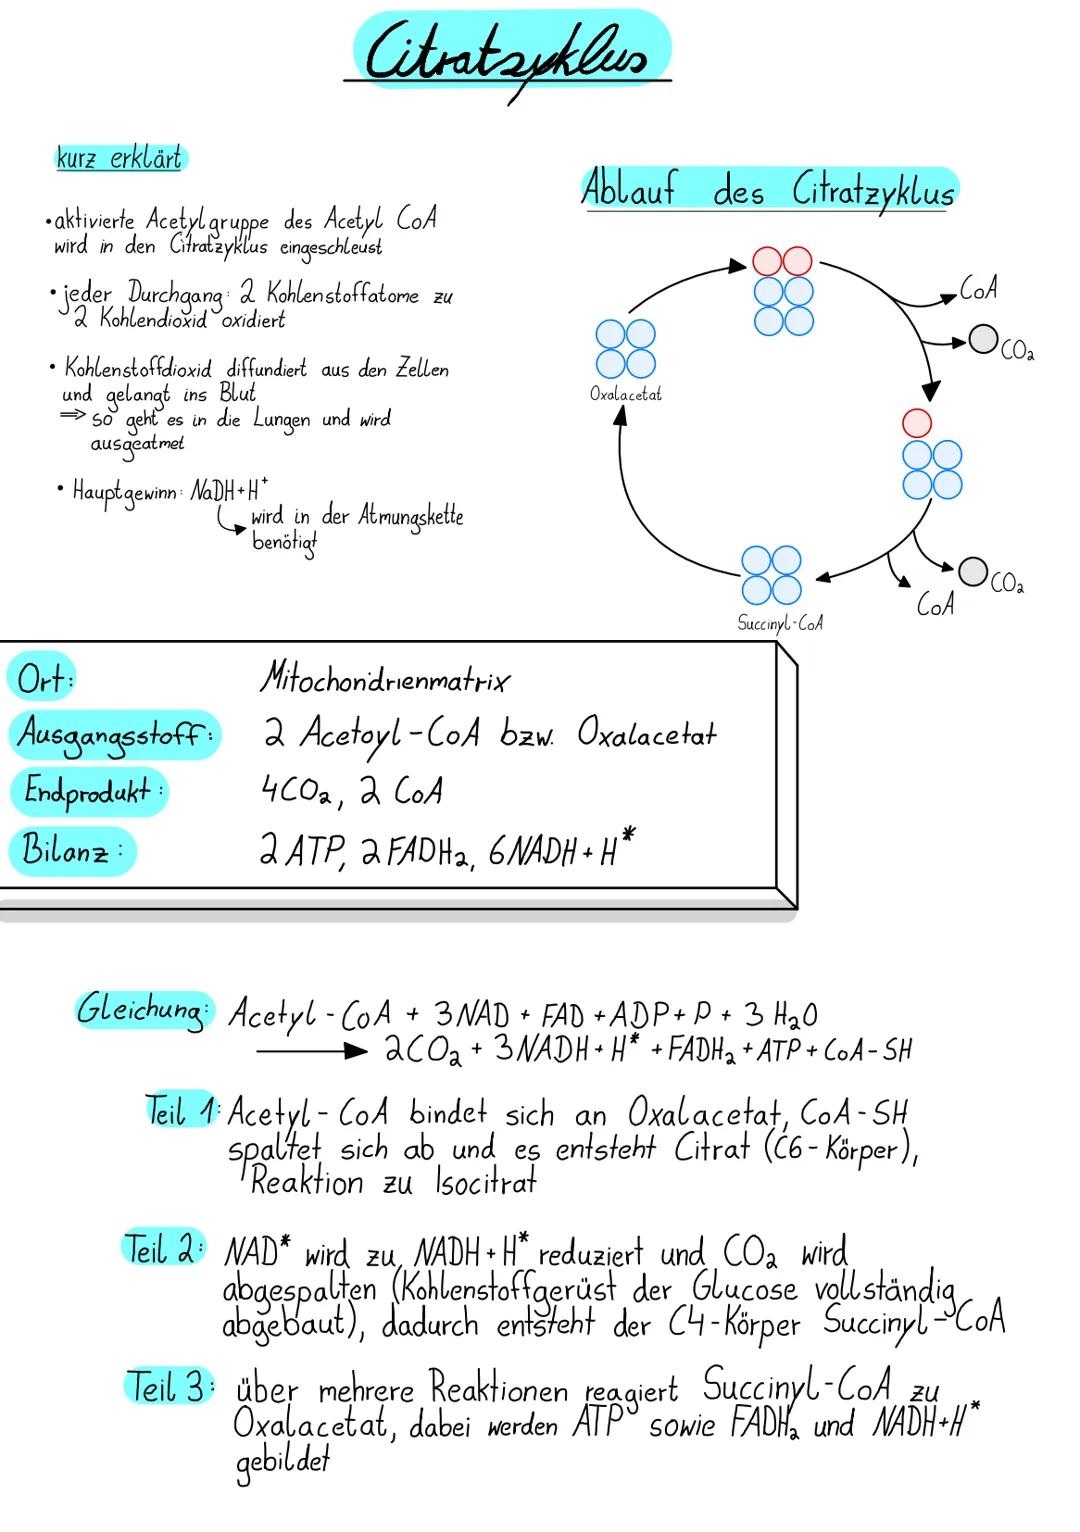 Citratzyklus
kurz erklärt
•aktivierte Acetylgruppe des Acetyl CoA
wird in den Citratzyklus eingeschleust
•jeder Durchgang: 2 Kohlenstoffatome zu
2 Kohlendioxid oxidiert
• Kohlenstoffdioxid diffundiert aus den Zellen
und gelangt ins Blut
⇒ so geht es in die Lungen und wird
ausgeatmet
• Hauptgewinn: NaDH+H⁺
wird in der Atmungskette
benötigt
Ablauf des Citratzyklus
CoA
CO₂
Oxalacetat
CO₂
CoA
Succinyl-CoA
Ort: Mitochondrienmatrix
Ausgangsstoff: 2 Acetoyl-CoA bzw. Oxalacetat
Endprodukt: 4CO₂, 2 CoA
Bilanz: 2 ATP, 2 FADH₂, 6NADH+H*
Gleichung: Acetyl-CoA + 3NAD + FAD + ADP+ P + 3 H₂O
→ 2CO₂ + 3NADH+H* + FADH₂ + ATP + CoA-SH
Teil 1: Acetyl-CoA bindet sich an Oxalacetat, CoA-SH
spaltet sich ab und es entsteht Citrat (C6-Körper),
Reaktion zu Isocitrat
Teil 2: NAD* wird zu NADH+H* reduziert und CO₂ wird
abgespalten (Kohlenstoffgerüst der Glucose vollständig
abgebaut), dadurch entsteht der C4-Körper Succinyl-CoA
Teil 3: über mehrere Reaktionen reagiert Succinyl-CoA zu
Oxalacetat, dabei werden ATP sowie FADH₂ und NADH+H*
gebildet